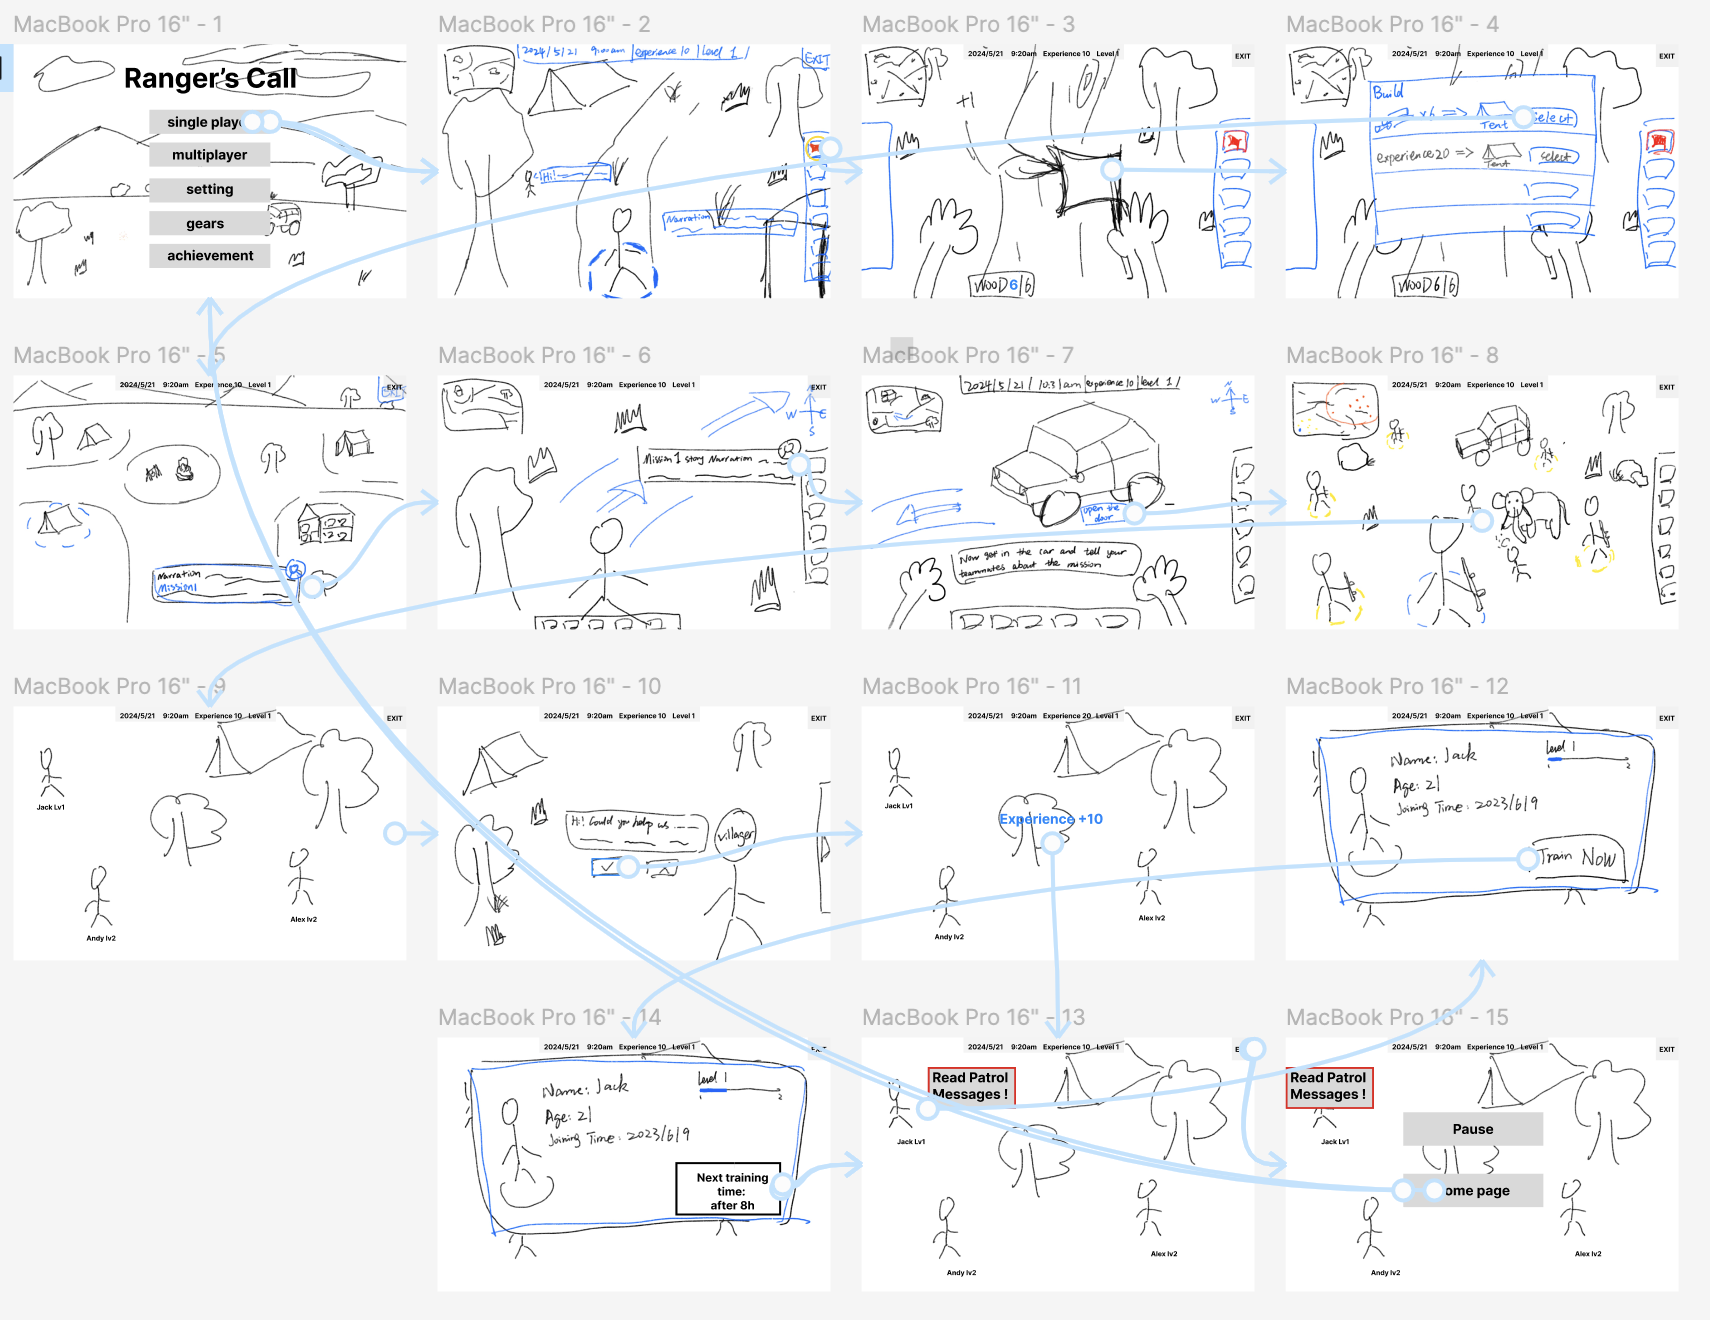 MacBook Pro 16" - 1
Ranger's Call
single playe
multiplayer
setting
gears
achievement
MacBook Pro 16" - 2
2024/5/21 9:00am |experience 10 |Level 1 /
EXIT
Hi!
Narration
MacBook Pro 16" - 3
2024/5/21 9:20am Experience 10 Level 1
EXIT
+1
WOOD 6/6
MacBook Pro 16" - 4
2024/5/21 9:20am Experience 10 Level 1
EXIT
Build
x6 =>
Tent
select
experience20 =>
Tent
select
WOOD 6/6
MacBook Pro 16" - 5
2024/5/21 9:20am Experience 10 Level 1
EXIT
Narration
Mission1
MacBook Pro 16" - 6
2024/5/21 9:20am Experience 10 Level 1
EXIT
W E
S
Mission 1 story Narration
MacBook Pro 16" - 7
2024/5/21 / 10:31am |experience 10 |level 1 /
N
W E
S
open the
door
Now get in the car and tell your
teammates about the mission
MacBook Pro 16" - 8
2024/5/21 9:20am Experience 10 Level 1
EXIT
MacBook Pro 16" - 9
2024/5/21 9:20am Experience 10 Level 1
EXIT
Jack Lv1
Andy lv2
Alex lv2
MacBook Pro 16" - 10
2024/5/21 9:20am Experience 10 Level 1
EXIT
Hi! Could you help us
villager
MacBook Pro 16" - 11
2024/5/21 9:20am Experience 20 Level 1
EXIT
Jack Lv1
Experience +10
Andy lv2
Alex lv2
MacBook Pro 16" - 12
2024/5/21 9:20am Experience 10 Level 1
EXIT
Name: Jack
Age: 21
Joining Time: 2023/6/9
Level 1
1 2
Train Now
MacBook Pro 16" - 14
2024/5/21 9:20am Experience 10 Level 1
EXIT
Name: Jack
Age: 21
Joining Time: 2023/6/9
Level 1
1 2
Next training
time:
after 8h
MacBook Pro 16" - 13
2024/5/21 9:20am Experience 10 Level 1
Read Patrol
Messages !
Jack Lv1
Andy lv2
Alex lv2
MacBook Pro 16" - 15
2024/5/21 9:20am Experience 10 Level 1
EXIT
Read Patrol
Messages !
Jack Lv1
Pause
ome page
Andy lv2
Alex lv2